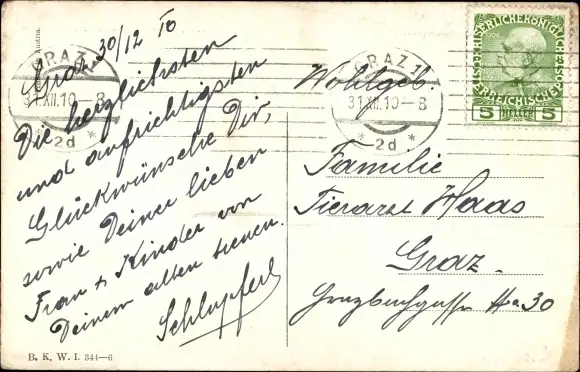 Graz 30/12 10
Die herzlichsten
und aufrichtigsten
Glückwünsche Dir,
sowie Deiner lieben
Frau + Kinder von
Deinem alten treuen
Schlupferl
B. K. W. I. 344—6
GRAZ 1
31.XII.10–8
* 2d *
GRAZ 1
31.XII.10–8
* 2d *
KAISERLICHE KÖNIGLICHE
ÖSTERREICHISCHE POST
5 HELLER 5
Wohlgeb.
Familie
Tierarzt Haas
Graz.
30